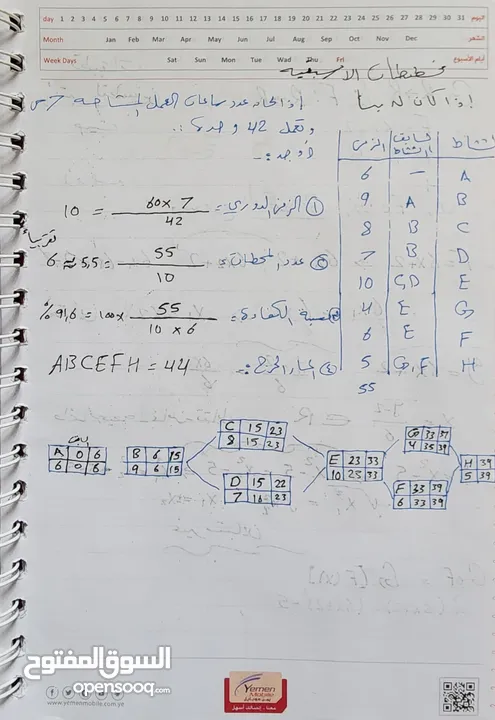 day 1 2 3 4 5 6 7 8 9 10 11 12 13 14 15 16 17 18 19 20 21 22 23 24 25 26 27 28 29 30 31 اليوم
Month Jan Feb Mar Apr May Jun Jul Aug Sep Oct Nov Dec الشهر
Week Days Sat Sun Mon Tue Wed Thu Fri أيام الأسبوع
إذا كان لدينا
إذا كان عدد ساعات العمل المتاحة 7 س
وتعمل 42 وحدة
أوجد :-
الزمن
6 — A
9 A B
8 B C
7 B D
10 C,D E
4 E G
6 E F
5 G,F H
55
① الزمن الدوري = 60 x 7 / 42 = 10
② عدد المحطات = 55 / 10 = 5,5 ≈ 6 تقريباً
نسبة الكفاءة = 55 / 10 x 6 x 100 = 91,6 %
المسار الحرج :- ABCEFH = 44
A 0 6
6 0 6
B 6 15
9 6 15
C 15 23
8 15 23
D 15 22
7 16 23
E 23 33
10 23 33
G 33 37
4 35 39
F 33 39
6 33 39
H 39
5 39
السوق المفتوح
opensooq.com
www.yemenmobile.com.ye
Yemen Mobile
معنا .. إتصالك أسهل